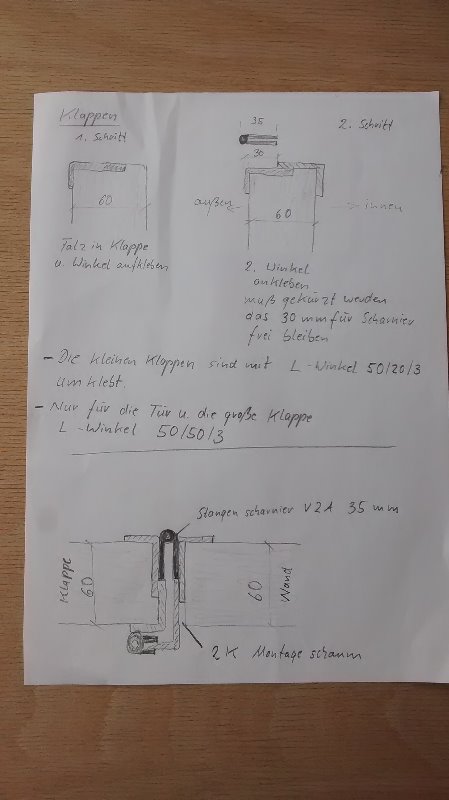 Klappen
1. Schritt
60
Falz in Klappe
u. Winkel aufkleben
35
2. Schritt
30
außen
60
innen
2. Winkel
ankleben
muß gekürzt werden
das 30 mm für Scharnier
frei bleiben
- Die kleinen Klappen sind mit L-Winkel 50/20/3
umklebt.
- Nur für die Tür u. die große Klappe
L-Winkel 50/50/3
Stangenscharnier V2A 35 mm
Klappe
60
60
Wand
2K Montageschaum